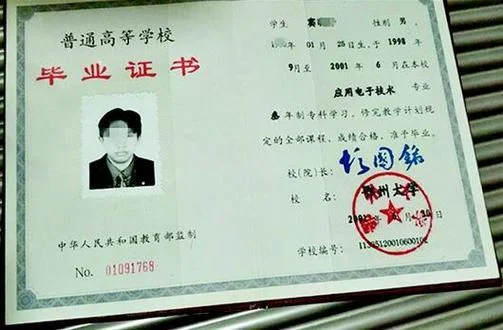 普通高等学校
毕业证书
中华人民共和国教育部监制
No. 01091768
学生 性别 男，
年01月25日生，于1998
年9月至2001年6月在本校
应用电子技术 专业
叁年制专科学习，修完教学计划规
定的全部课程，成绩合格，准予毕业。
校(院)长：
校 名： 郑州大学
学校编号：